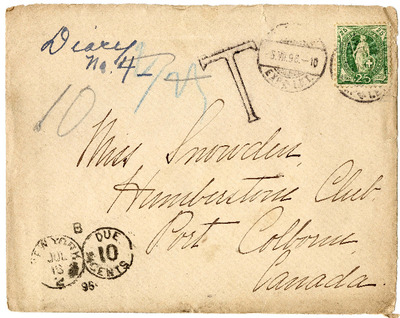 Diary
No. 4
T
25
10
Miss Snowden,
Humberstone Club.
Port Colborne,
Canada.
B
NEW YORK
JUL
DUE
10
CENTS
96.